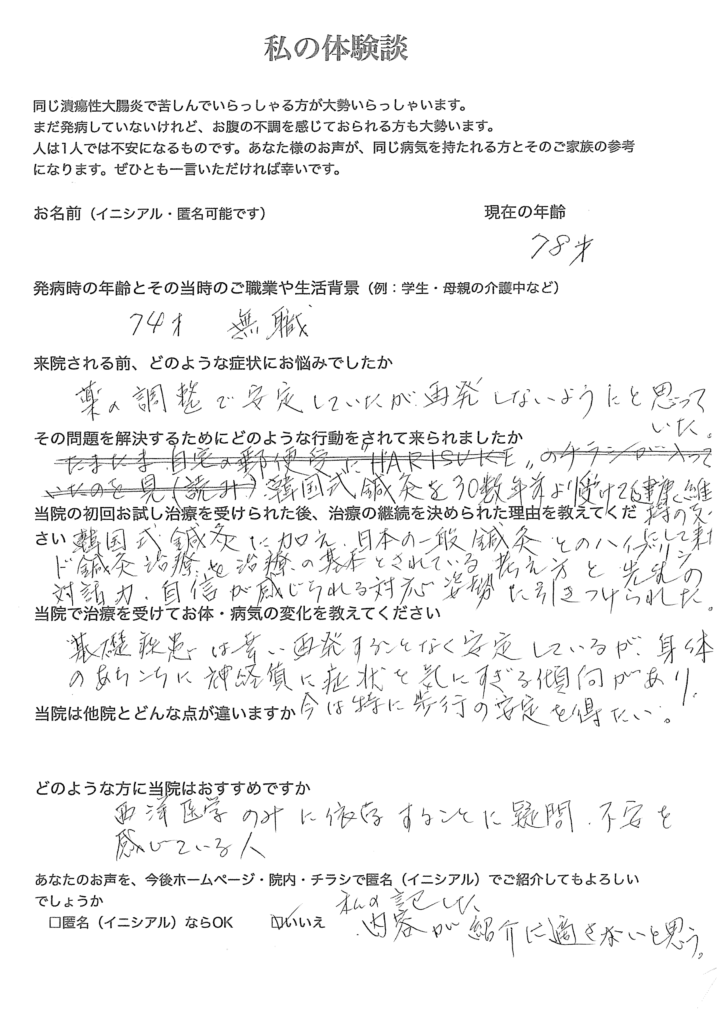 私の体験談
同じ潰瘍性大腸炎で苦しんでいらっしゃる方が大勢いらっしゃいます。
まだ発病していないけれど、お腹の不調を感じておられる方も大勢います。
人は1人では不安になるものです。あなた様のお声が、同じ病気を持たれる方とそのご家族の参考
になります。ぜひとも一言いただければ幸いです。
お名前（イニシアル・匿名可能です） 現在の年齢
78才
発病時の年齢とその当時のご職業や生活背景（例：学生・母親の介護中など）
74才 無職
来院される前、どのような症状にお悩みでしたか
薬の調整で安定していたが、再発しないようにと思って
いた。
その問題を解決するためにどのような行動をされて来られましたか
たまたま自宅の郵便受に"HARISUKE"のチラシが入って
いたのを見(読み) 韓国式鍼灸を30数年前より受けて健康維
持の支
にして来
当院の初回お試し治療を受けられた後、治療の継続を決められた理由を教えてくだ
さい 韓国式鍼灸に加え、日本の一般鍼灸とのハイブリッ
ド鍼灸治療を治療の基本とされている考え方と先生の
対話力、自信が感じられる対応姿勢に引きつけられた。
当院で治療を受けてお体・病気の変化を教えてください
基礎疾患は幸い再発することなく安定しているが、身体
のあちこちに神経質に症状を気にすぎる傾向があり、
当院は他院とどんな点が違いますか 今は特に歩行の安定を得たい。
どのような方に当院はおすすめですか
西洋医学のみに依存することに疑問、不安を
感じている人
あなたのお声を、今後ホームページ・院内・チラシで匿名（イニシアル）でご紹介してもよろしい
でしょうか 私の記した
☐匿名（イニシアル）ならOK ☑いいえ 内容が紹介に適さないと思う。